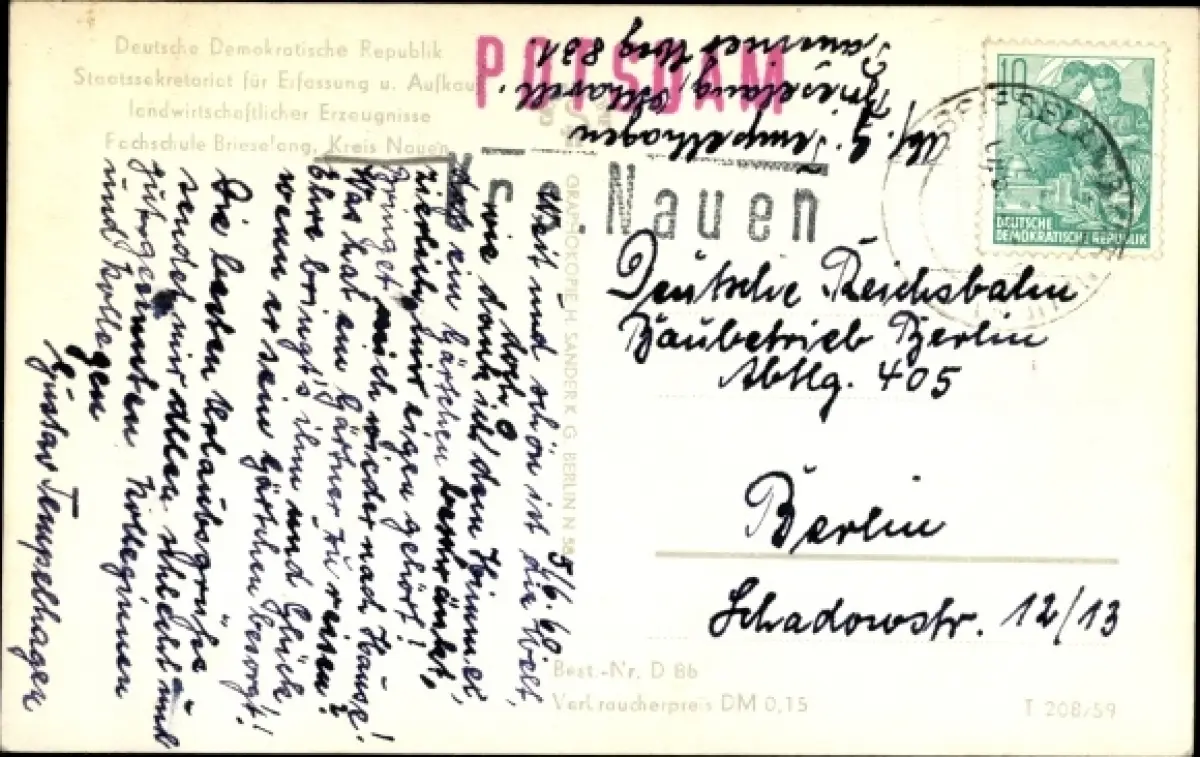 Deutsche Demokratische Republik
Staatssekretariat für Erfassung u. Aufkauf
landwirtschaftlicher Erzeugnisse
Fachschule Brieselang, Kreis Nauen
POTSDAM
Nauen
Abs. G. Tempelhagen
Brieselang,
Weg 831.
10
DEUTSCHE
DEMOKRATISCHE REPUBLIK
BRIESELANG
5/6. 60
Weit und schön ist die Welt,
doch o
wie dank' ich dem Himmel,
daß ein Gärtchen beschränkt,
zierlich, mir eigen gehört!
Bringet mich wieder nach Hause!
Was hat ein Gärtner zu reisen?
Ehre bringt's ihm und Glück,
wenn er sein Gärtchen besorgt!
Die besten Urlaubsgrüße
sendet mir allen
gutgesinnten Kolleginnen
und Kollegen
Gustav Tempelhagen
GRAPHOKOPIE H. SANDER K G BERLIN N 58
Deutsche Reichsbahn
Baubetrieb Berlin
Abtlg. 405
Berlin
Schadowstr. 12/13
Best.-Nr. D 8b
Verbraucherpreis DM 0,15
T 208/59